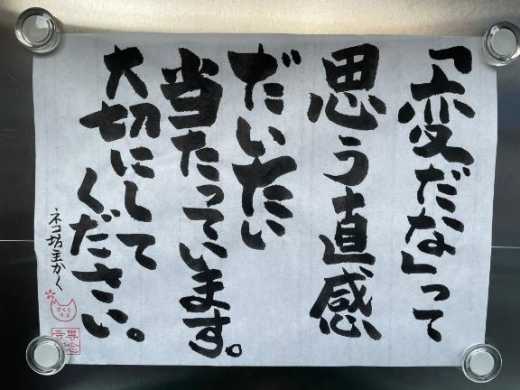 「変だな」って
思う直感
だいたい
当たっています。
大切にして
ください。
ネコ坊主かく